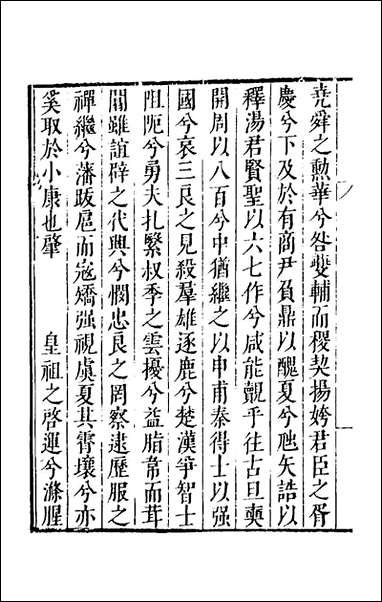 堯舜之勲華兮咎夔輔而稷契揚姱君臣之胥
慶兮下及於有商尹負鼎以醜夏兮虺矢誥以
釋湯君賢聖以六七作兮咸能覿乎往古旦奭
開周以八百兮中猶繼之以申甫秦得士以强
國兮哀三良之見殺羣雄逐鹿兮楚漢爭智士
阻阨兮勇夫扎緊叔季之雲擾兮益脂韋而茸
闒雖誼辟之代興兮憫忠良之罔察逮歷服之
禪繼兮藩跋扈而寇矯强視虞夏其霄壤兮亦
奚取於小康也肇　　皇祖之啓運兮滌腥